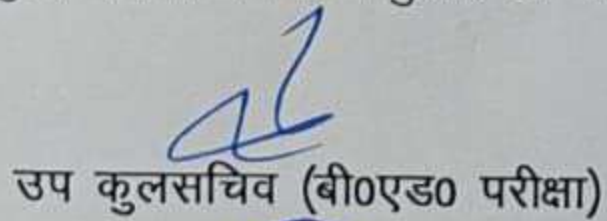 उप कुलसचिव (बी0एड0 परीक्षा)